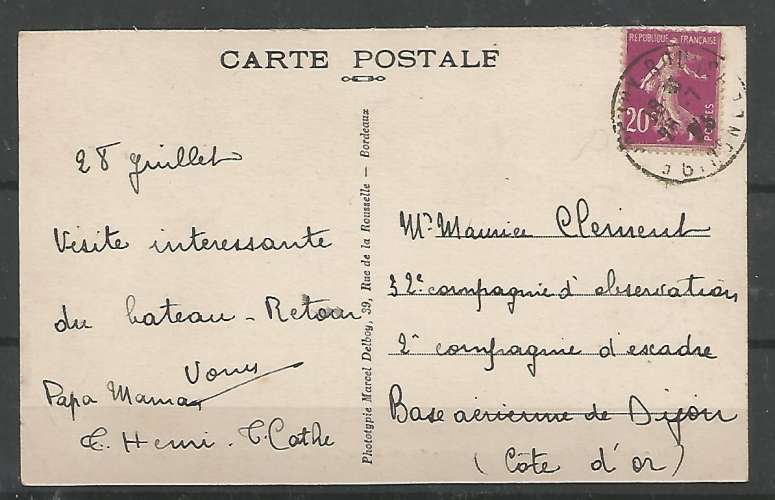 CARTE POSTALE
28 Juillet
Visite interessante
du bateau - Retour
Papa Maman
T. Henri - T. Cathe
Phototypie Marcel Delboy, 39, Rue de la Rousselle — Bordeaux
REPUBLIQUE FRANÇAISE
20c
POSTES
Mr Maurice Clement
32e compagnie d'observation
2e compagnie d'escadre
Base aérienne de Dijon
(Côte d'or)